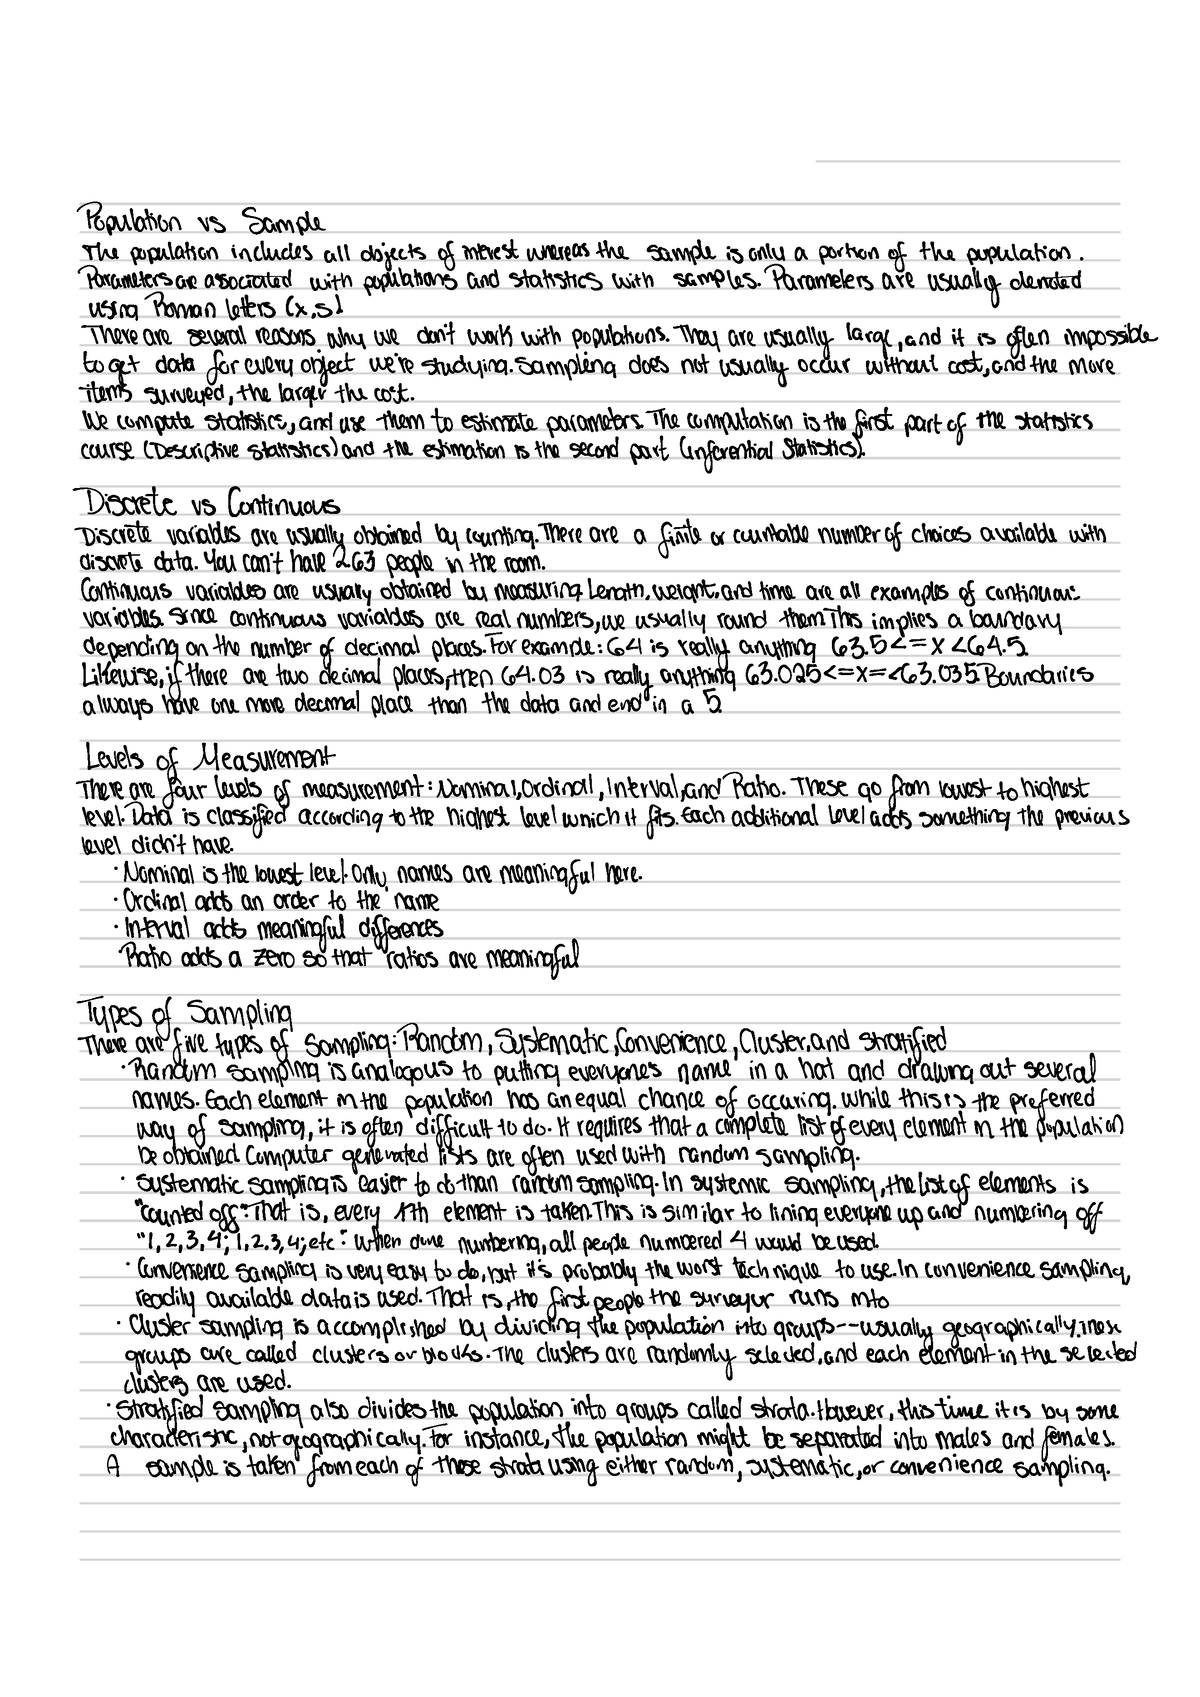 Population vs Sample
The population includes all objects of interest whereas the sample is only a portion of the pupulation.
Parameters are associated with populations and statistics with samples. Parameters are usually denoted
using Roman letters (x,s)
There are several reasons why we don't work with populations. They are usually large, and it is often impossible
to get data for every object we're studying. Sampling does not usually occur without cost, and the more
items surveyed, the larger the cost.
We compute statistics, and use them to estimate parameters. The computation is the first part of the statistics
course (Descriptive Statistics) and the estimation is the second part (inferential Statistics).
Discrete vs Continuous
Discrete variables are usually obtained by counting. There are a finite or countable number of choices available with
discrete data. You can't have 2.63 people in the room.
Continuous variables are usually obtained by measuring. Length, weight, and time are all examples of continuous
variables. Since continuous variables are real numbers, we usually round them This implies a boundary
depending on the number of decimal places. For example: 64 is really anything 63.5<=x<64.5
Likewise, if there are two decimal places, then 64.03 is really anything 63.025<=x=<63.035 Boundaries
always have one more decimal place than the data and end in a 5
Levels of Measurement
There are four levels of measurement: Nominal, Ordinal, Interval, and Ratio. These go from lowest to highest
level. Data is classified according to the highest level which it fits. Each additional level adds something the previous
level didn't have.
· Nominal is the lowest level. Only names are meaningful here.
· Ordinal adds an order to the name
· Interval adds meaningful differences
Ratio adds a zero so that ratios are meaningful
Types of Sampling
There are five types of Sampling: Random, Systematic, Convenience, Cluster, and stratified
· Random sampling is analogous to putting everyone's name in a hat and drawing out several
names. Each element in the population has an equal chance of occuring. While this is the preferred
way of sampling, it is often difficult to do. It requires that a complete list of every element in the population
be obtained. Computer generated lists are often used with random sampling.
· Systematic sampling is easier to do than random sampling. In systemic sampling, the list of elements is
"counted off". That is, every 17th element is taken. This is similar to lining everyone up and numbering off
"1,2,3,4; 1,2,3,4; etc". When done numbering, all people numbered 4 would be used.
· Convenience sampling is very easy to do, but it's probably the worst technique to use. In convenience sampling,
readily available data is used. That is, the first people the surveyor runs into
· Cluster sampling is accomplished by dividing the population into groups--usually geographically. These
groups are called clusters or blocks. The clusters are randomly selected, and each element in the selected
clusters are used.
· Stratified sampling also divides the population into groups called strata. However, this time it is by some
characteristic, not geographically. For instance, the population might be separated into males and females.
A sample is taken from each of these strata using either random, systematic, or convenience sampling.